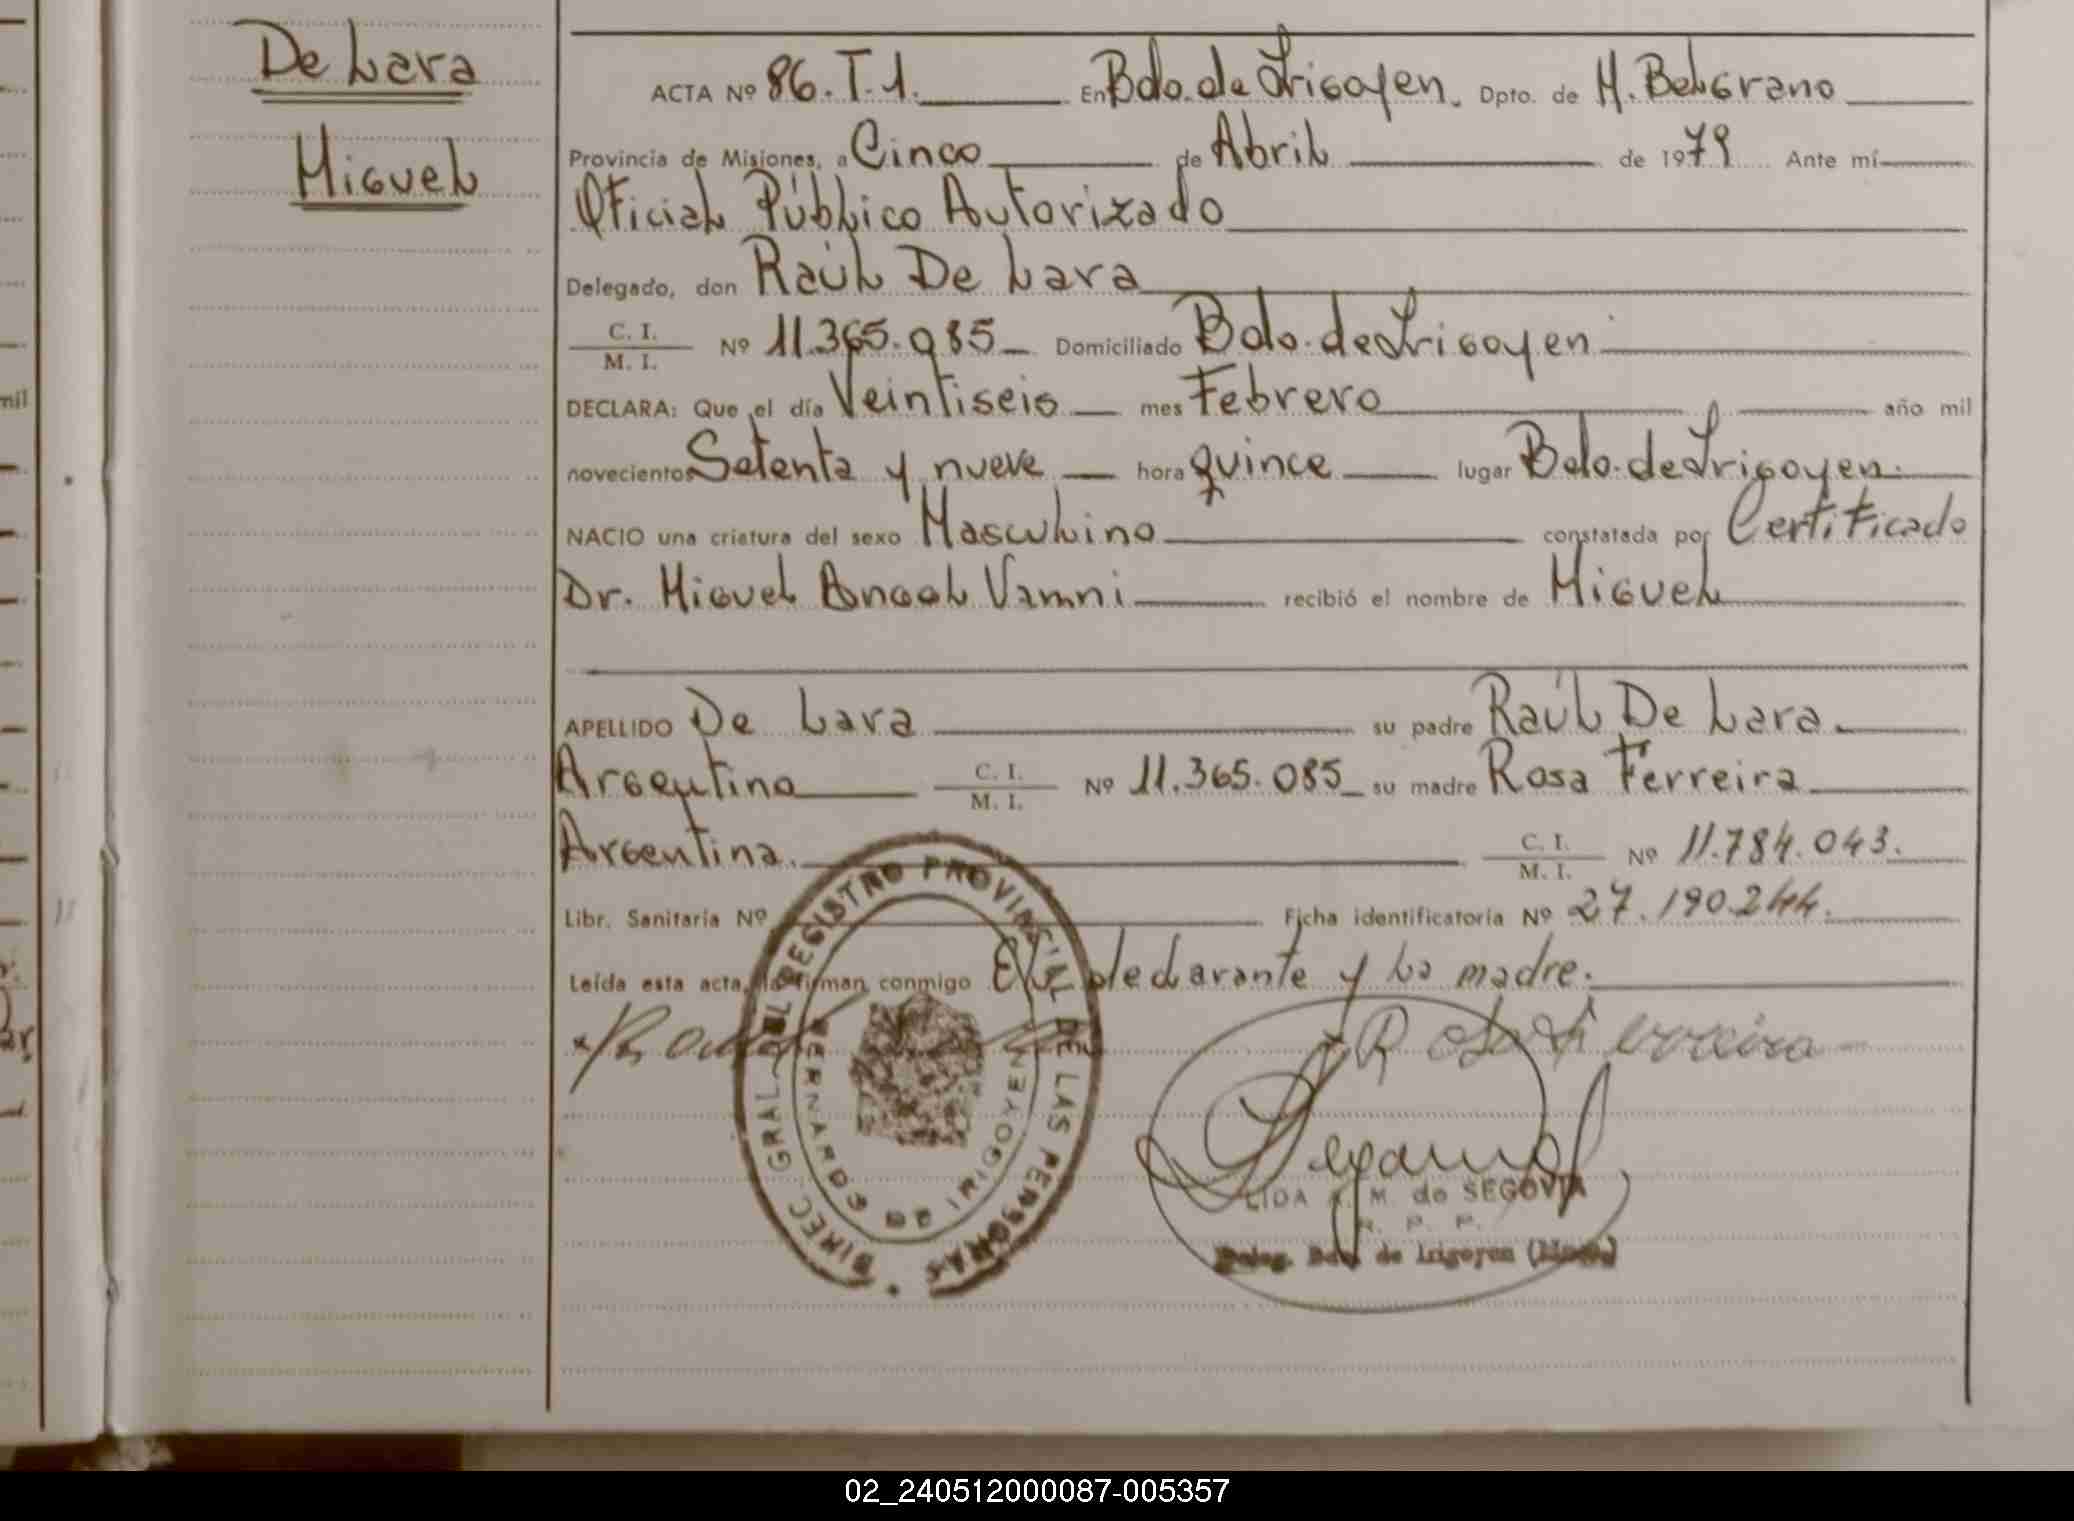 De Lara
Miguel
ACTA Nº 86. T. 1. En Bdo. de Irigoyen. Dpto. de M. Belgrano
Provincia de Misiones, a Cinco de Abril de 1979 Ante mí
Oficial Público Autorizado
Delegado, don Raúl De Lara
C. I.
M. I. Nº 11.365.085 Domiciliado Bdo. de Irigoyen
DECLARA: Que el día Veintiseis mes Febrero año mil
novecientos Setenta y nueve hora quince lugar Bdo. de Irigoyen.
NACIO una criatura del sexo Masculino constatada por Certificado
Dr. Miguel Angel recibió el nombre de Miguel
APELLIDO De Lara su padre Raúl De Lara
Argentino C. I.
M. I. Nº 11.365.085 su madre Rosa Ferreira
Argentina. C. I.
M. I. Nº 11.784.043.
Libr. Sanitaria Nº Ficha identificatoria Nº 27.190.244.
Leída esta acta, la firman conmigo El declarante y la madre.
Rosa Ferreira
DIREC GRAL DEL REGISTRO PROVINCIAL DE LAS PERSONAS
BERNARDO DE IRIGOYEN
LIDA A. M. de SEGOVIA
R. P. P.
Deleg. Bdo. de Irigoyen (Mnes.)
mil
02_240512000087-005357